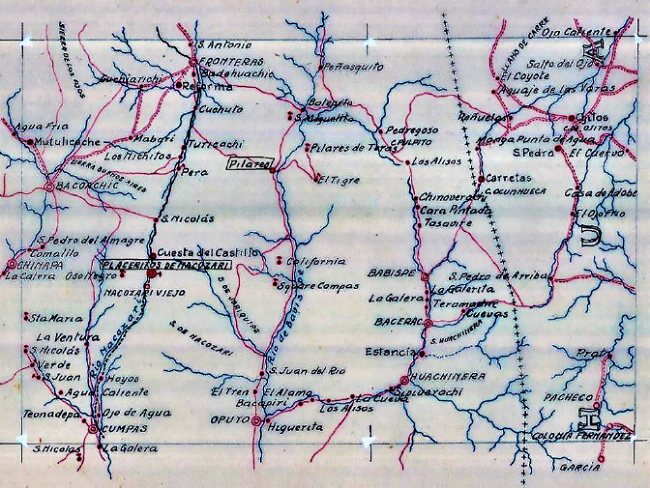 S. Antonio
FRONTERAS
Badehuachic
Reforma
Cuchuto
Turicachi
Los Nichitos
Pera
S. Nicolás
SIERRA DE LOS AJOS
Agua Fria
Mututicache
Mabari
SIERRA BUENOS AIRES
BACOACHIC
S. Pedro del Almagre
Comalito
CHINAPA
La Calera
Oso Negro
Cuesta del Castillo
PLACERITOS DE NACOZARI
NACOZARI VIEJO
Sta Maria
La Ventura
S. Nicolás
Verde
S. Juan
Hoyos
Agua Caliente
Teonadepa
Ojo de Agua
CUMPAS
S. Nicolas
La Galera
Peñasquito
S. Miguelito
Pilares de Teras
Pilares
El Tigre
California
Square Compas
Rio de Babispe
S. DE NACOZARI
S. Juan del Rio
El Tren
El Alamo
Bacapiri
OPUTO
Higuerita
Los Alisos
La Cueva
HUACHINERA
Estancia
Pedregoso
C. PULPITO
Los Alisos
Chinoveratu
Cara Pintada
Tasavire
BABISPE
La Galerita
La Galera
Teramacha
Cuevas
BACERAC
S. HUACHINERA
S. Pedro de Arriba
LLANO DE CARRE
Ojo Caliente
Salto del Ojo
El Coyote
Aguaje de las Varas
Peñuelas
Ojitos
C. DE ALITOS
Punta de Agua
S. Pedro
El Cuervo
Carretas
Casa de Adobe
El Ojo Fno
A
U
H
Prat
PACHECO
COLONIA FERNANDEZ
GARCIA